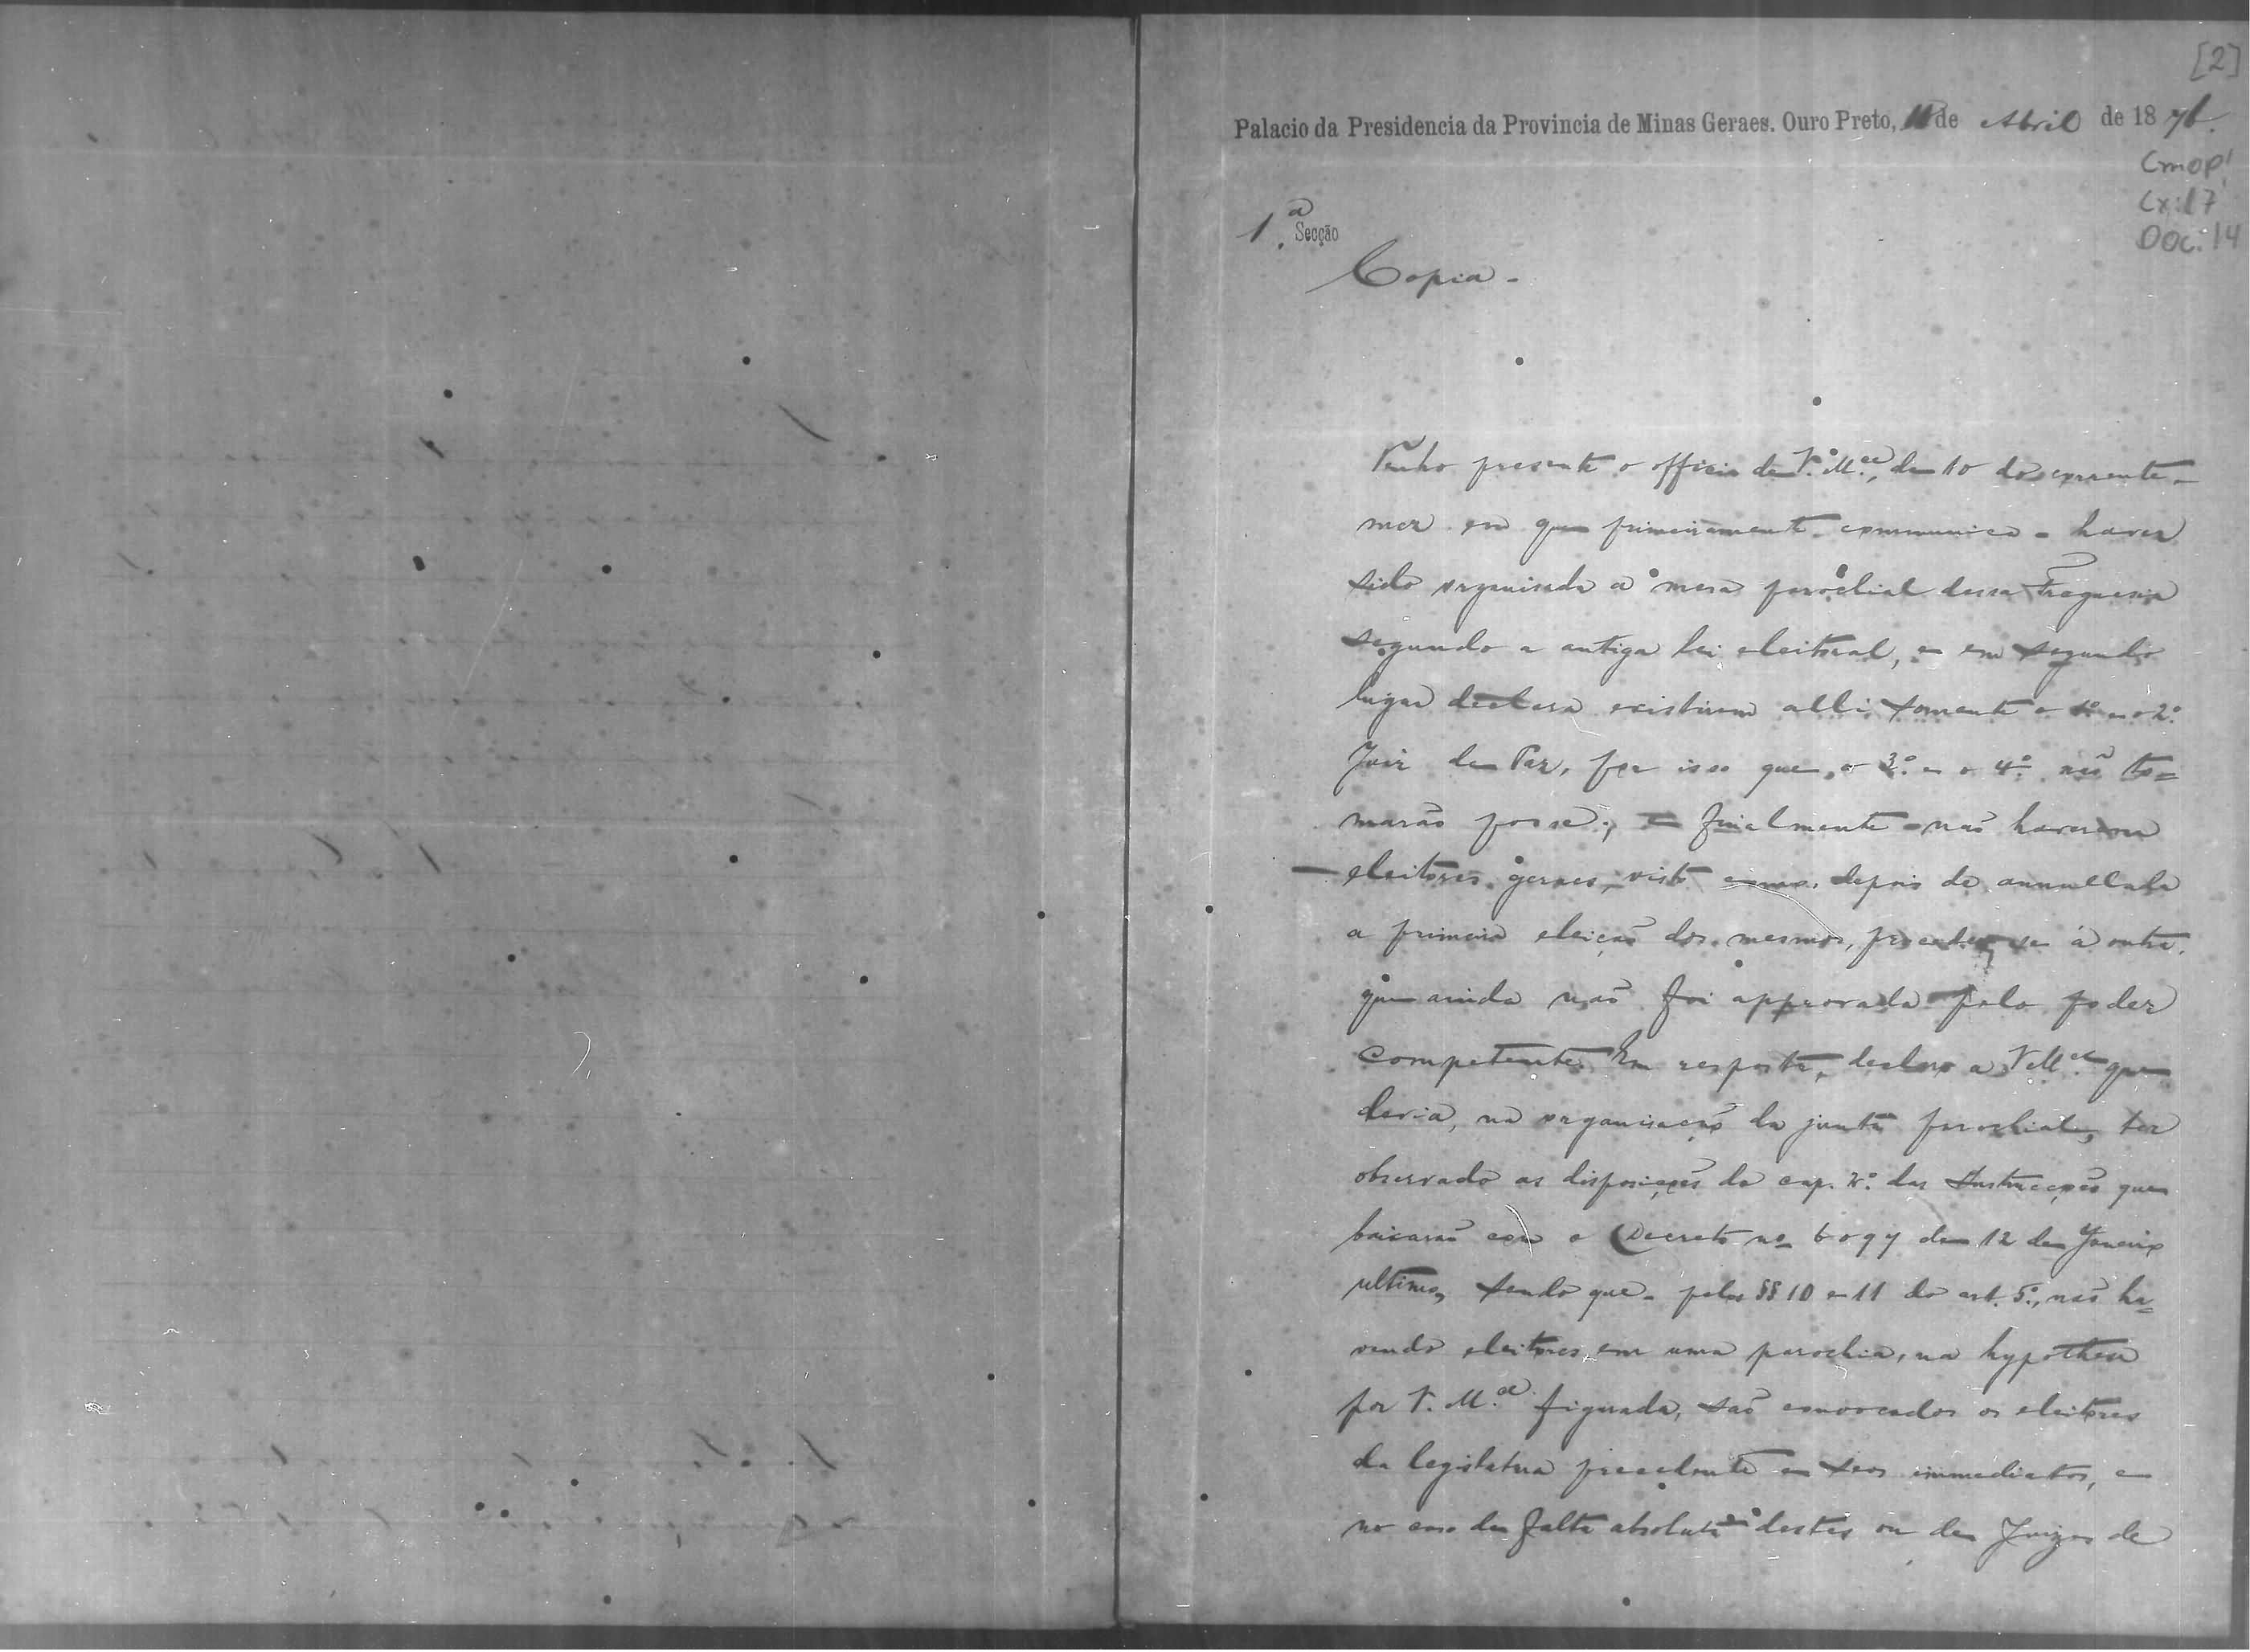 [2]
Palacio da Presidencia da Provincia de Minas Geraes. Ouro Preto, 11 de Abril de 1876.
Cmop!
Cx:17
Doc: 14
1.ª Secção
Copia -
Tenho presente o officio de V. M.ce, de 10 do corrente
mez em que primeiramente communica haver
sido organisada a mesa parochial dessa Freguesia
segundo a antiga lei eleitoral, e em segundo
lugar declara existirem alli somente o 1º e o 2º
Juiz de Paz, por isso que o 3º e o 4º não to=
marão posse; e finalmente não haverem
eleitores geraes, visto como, depois de annullada
a primeira eleição dos mesmos, procedeu-se á outra,
que ainda não foi approvada pelo poder
competente. Em resposta, declaro a V. M.ce que
devia, na organisação da junta parochial, ter
observado as disposições do cap. das Instrucções que
baixarão com o Decreto nº 6097 de 12 de Janeiro
ultimo, sendo que pelos §§ 10 e 11 do art. 5º, não ha=
vendo eleitores em uma parochia, na hypothese
por V. M.ce figurada, são convocados os eleitores
da legislatura precedente e seos immediatos, e
no caso de falta absoluta destes ou de Juizes de